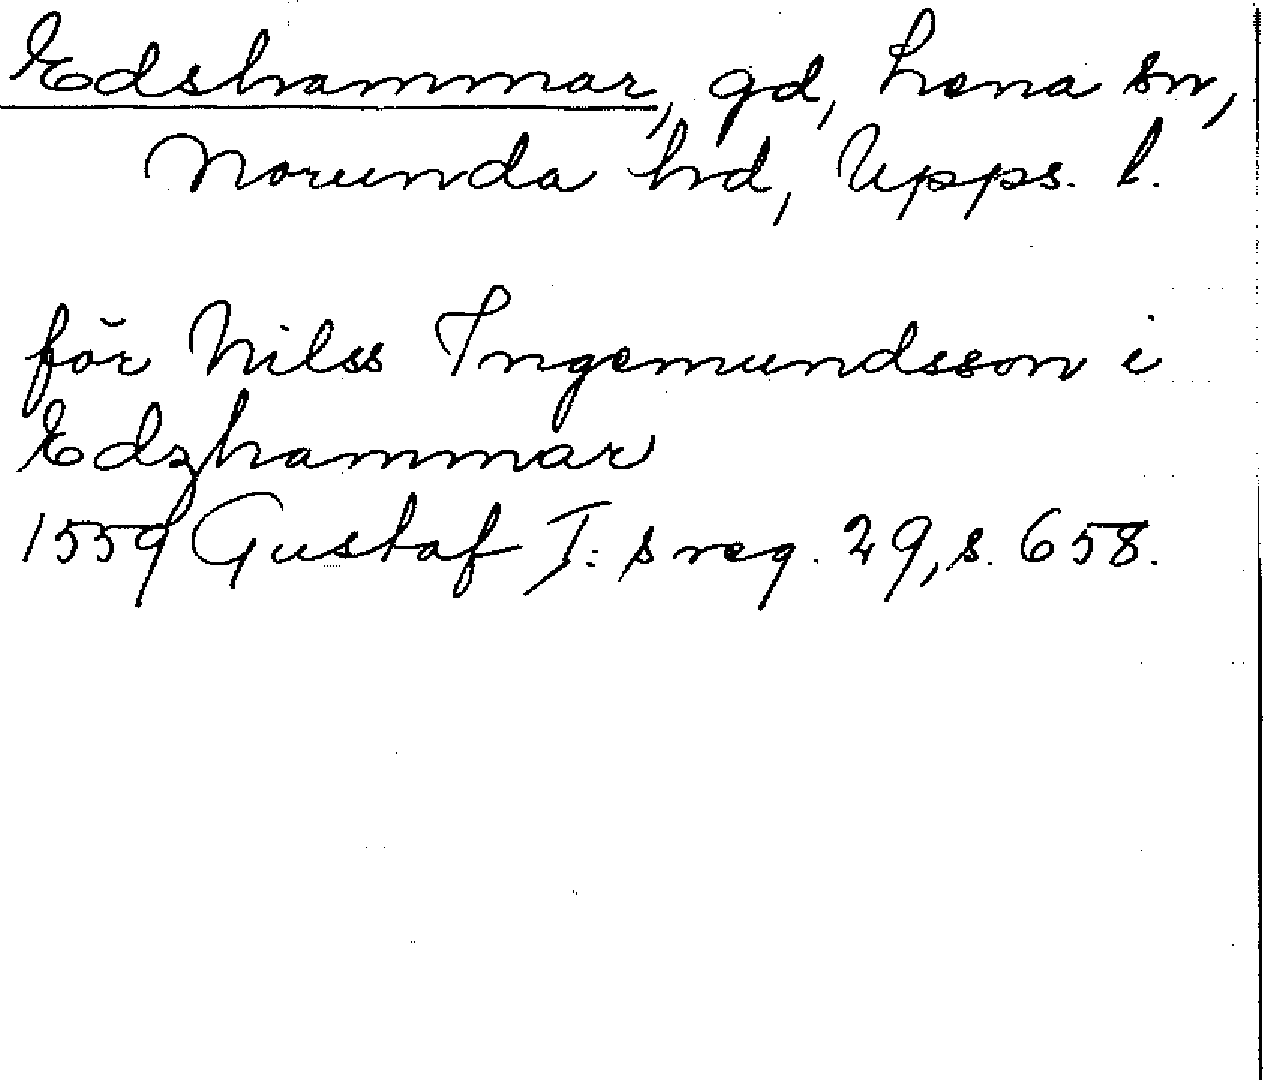 Edshammar, gd, Lena sn,
Norunda hd, Upps. l.
för Nilss Ingemundsson i
Edzhammar
1559 Gustaf I:s reg. 29, s. 658.